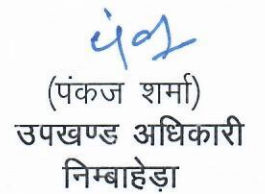 (पंकज शर्मा)
उपखण्ड अधिकारी
निम्बाहेड़ा